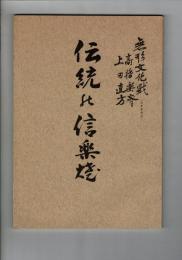 無形文化財
高橋楽斎
上田直方
伝統の信楽焼